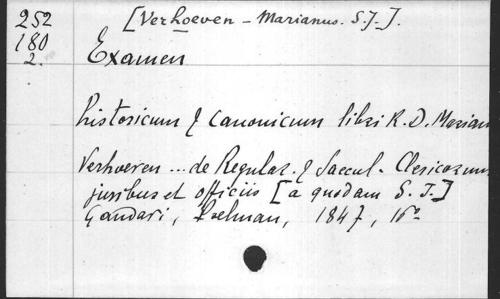 252
180
2.
[Verhoeven - Marianus. S.J.].
Examen
historicum & canonicum libri R. D. Marian
Verhoeven ... de Regular. & saecul. Clericorum
juribus et officiis [a quodam S. J.]
Gandavi, Poelman, 1847, 16º